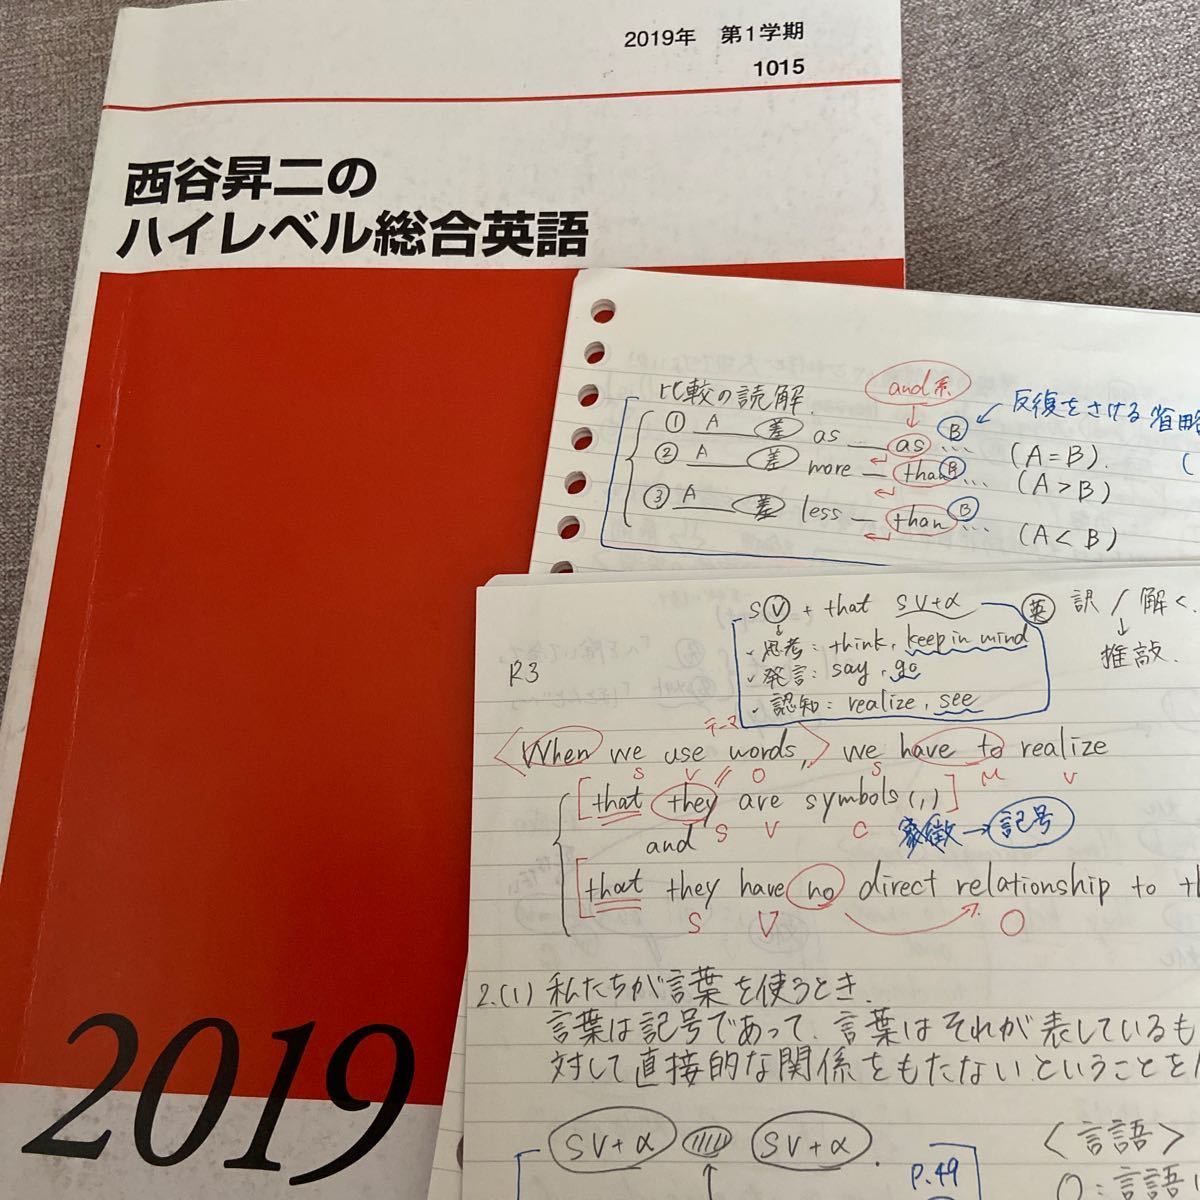 2019年 第1学期
1015
西谷昇二の
ハイレベル総合英語
2019
比較の読解.
and系
反復をさける省略
① A 差 as as B … (A=B).
② A 差 more than B … (A>B)
③ A 差 less than B … (A<B)
S V + that SV+α 英
訳/解く.
↓
推敲.
・思考: think, keep in mind
・発言: say, go
・認知: realize, see
R3
テーマ
<When we use words,> we have to realize
S V O S M V
[that they are symbols(,)]
S V C
象徴→記号
and
[that they have no direct relationship to th
S V O
2.(1) 私たちが言葉を使うとき.
言葉は記号であって、言葉はそれが表しているも
対して直接的な関係をもたないということを
SV+α SV+α.
P.49
<言語>
○:言語